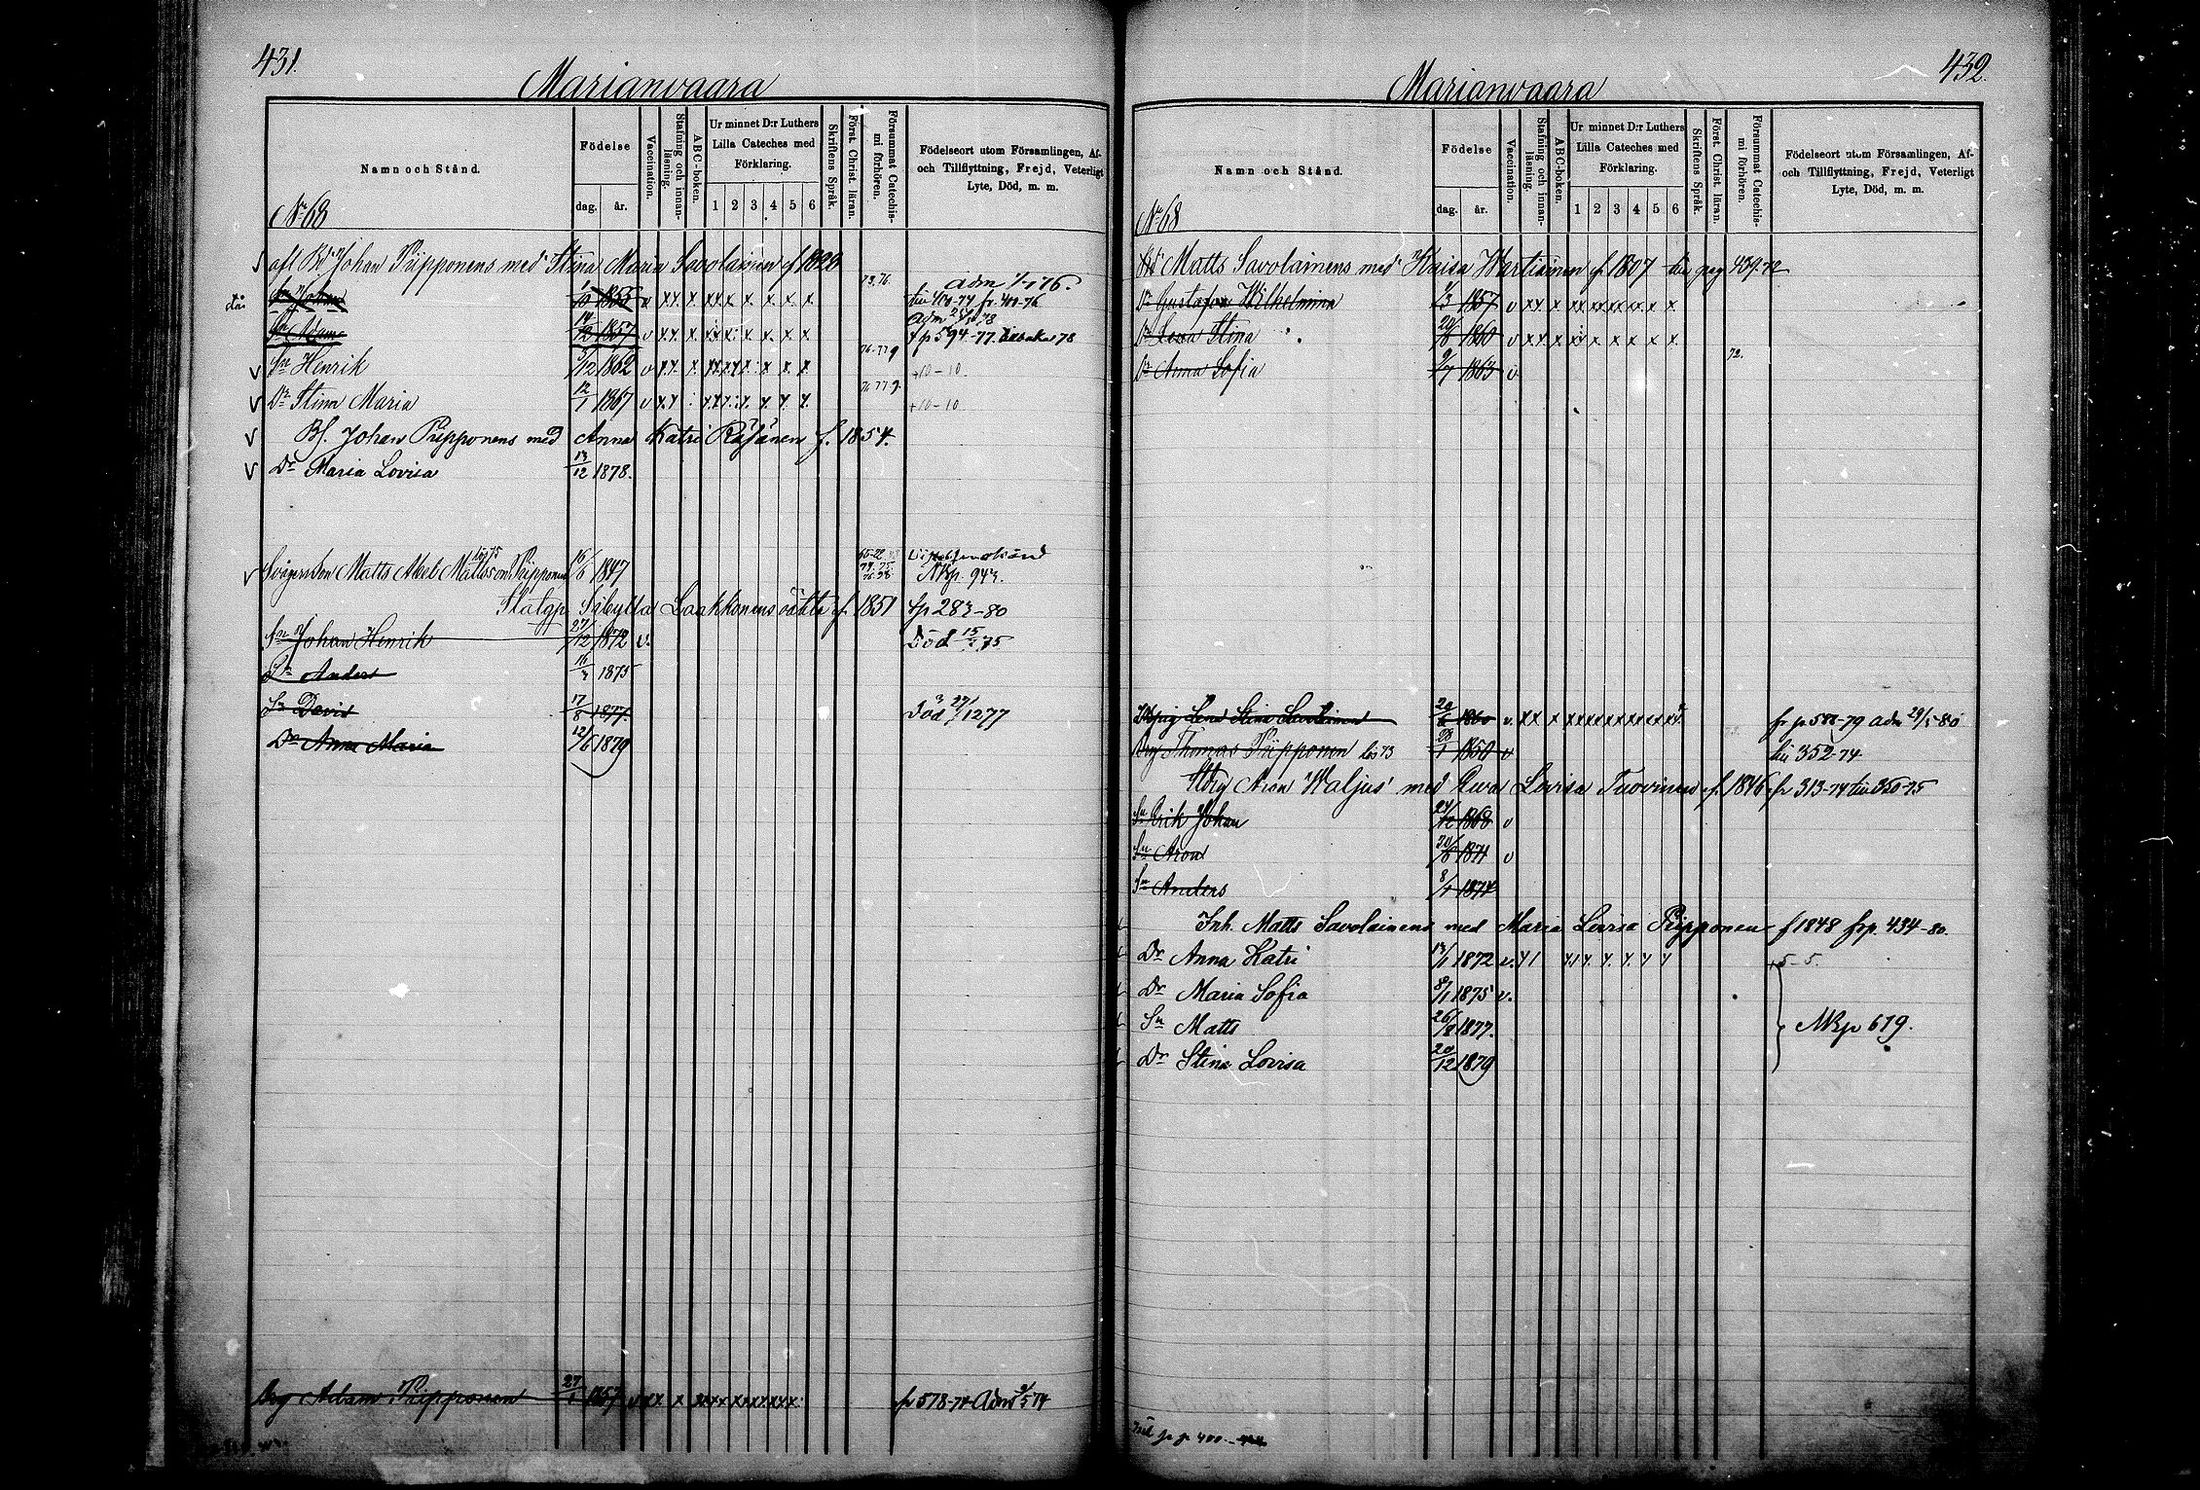 431.
Marianvaara
Namn och Stånd.
Födelse
dag.
år.
Vaccination.
Stafning och innan-läsning.
ABC-boken.
Ur minnet D:r Luthers
Lilla Cateches med
Förklaring.
1 2 3 4 5 6
Skriftens Språk.
Först. Christ. läran.
Försummat Catechis-mi förhören.
Födelseort utom Församlingen, Af-
och Tillflyttning, Frejd, Veterligt
Lyte, Död, m. m.
No 68
afl Bd Johan Piipponens med Stina Maria Savolainen f 1822
Sn Johan 1855 v xx x xx x x x x x 73.76. adm 76.
Sn Adam 14/12 1857 v xx x x x x x x f p 594-77 tillbaka 78
Sn Henrik 5/12 1862 v xx x xxxx x x x 76.77.9 +10-10.
Dr Stina Maria 12/1 1867 v xx 76 77 9. +10-10
Bf. Johan Piipponens med Anna Katri Räsänen f. 1854.
Dr Maria Lovisa 13/12 1878.
Svågers Son Matts Abel Mattsson Piipponen 16/6 1847 NBp. 943.
Slätgp Sibylla Laakkonens f 1851 fp 283-80
Sn Johan Henrik 27/12 1872 v. Död 15/ 75
Sn Anders 1875
Sn David 17/8 1877. Död 27/12 77
Dr Anna Maria 12/6 1879
Drg Adam Piipponen 27/1 1857 v xx x xxx xxxxxx fp 578-74 Adm 74
432.
Marianvaara
Namn och Stånd.
Födelse
dag.
år.
Vaccination.
Stafning och innan-läsning.
ABC-boken.
Ur minnet D:r Luthers
Lilla Cateches med
Förklaring.
1 2 3 4 5 6
Skriftens Språk.
Först. Christ. läran.
Försummat Catechis-mi förhören.
Födelseort utom Församlingen, Af-
och Tillflyttning, Frejd, Veterligt
Lyte, Död, m. m.
No 68
Bd Matts Savolainens med Kaisa Wartiainen f. 1807 till pag 439.72
Dr Gustafva Wilhelmina 1/3 1857 v xx x xxxxxx x x
Dr Lena Stina 20/6 1860 v xx x x x x x x x
Dr Anna Sofia 9/7 1863 v 72.
Lena Stina Savolainen 20/6 1860 v. xx x xxxxxxxxxxx fr p 588-79 adm 29/5 80
Drg Thomas Piipponen los 73 28/1 1850 v till 352-74.
Aron Waljus' med Eva Lovisa Tuovinen f. 1846 fr 313-74 till 350-75
Sn Erik Johan 24/12 1868 v
Sn Aron 30/6 1871 v
Sn Anders 8/1 1874
Inh. Matts Savolainens med Maria Lovisa Piipponen f 1848 frp. 434-80.
Dr Anna Katri 1872 v. +5-5.
Dr Maria Sofia 8/1 1875 v.
Sn Matts 26/ 1877. NBp 619.
Dr Stina Lovisa 20/12 1879